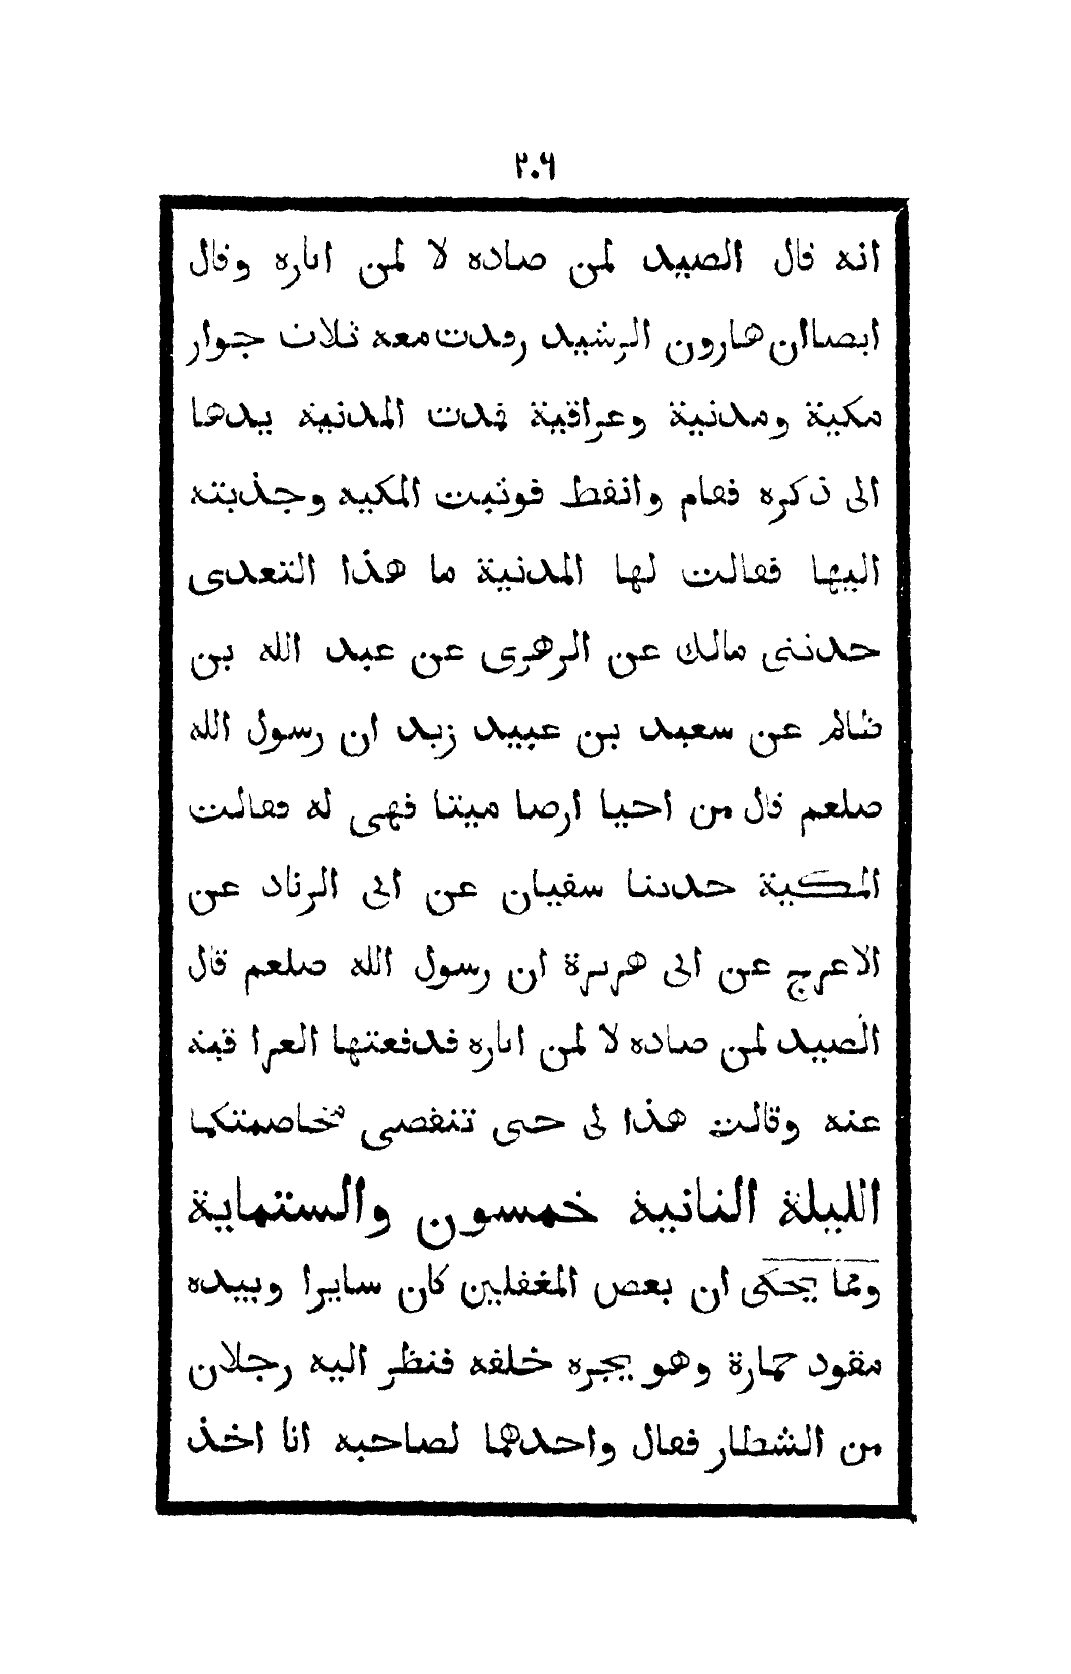 ٢٠٦
انه قال الصيد لمن صاده لا لمن اثاره وقال
ايضا ان هارون الرشيد رقدت معه ثلاث جوار
مكية ومدنية وعراقية فمدت المدنية يدها
الى ذكره فقام وانفط فوثبت المكيه وجذبته
اليها فقالت لها المدنية ما هذا التعدى
حدثنى مالك عن الزهرى عن عبد الله بن
ظالم عن سعيد بن عبيد زيد ان رسول الله
صلعم قال من احيا ارضا ميتا فهى له فقالت
المكية حدثنا سفيان عن ابى الزناد عن
الاعرج عن ابى هريرة ان رسول الله صلعم قال
الصيد لمن صاده لا لمن اثاره فدفعتها العراقية
عنه وقالت هذا لى حتى تنقضى مخاصمتكما
الليلة الثانية خمسون والستماية
ومما يحكى ان بعض المغفلين كان سايرا وبيده
مقود حمارة وهو يجره خلفه فنظر اليه رجلان
من الشطار فقال واحدهما لصاحبه انا اخذ